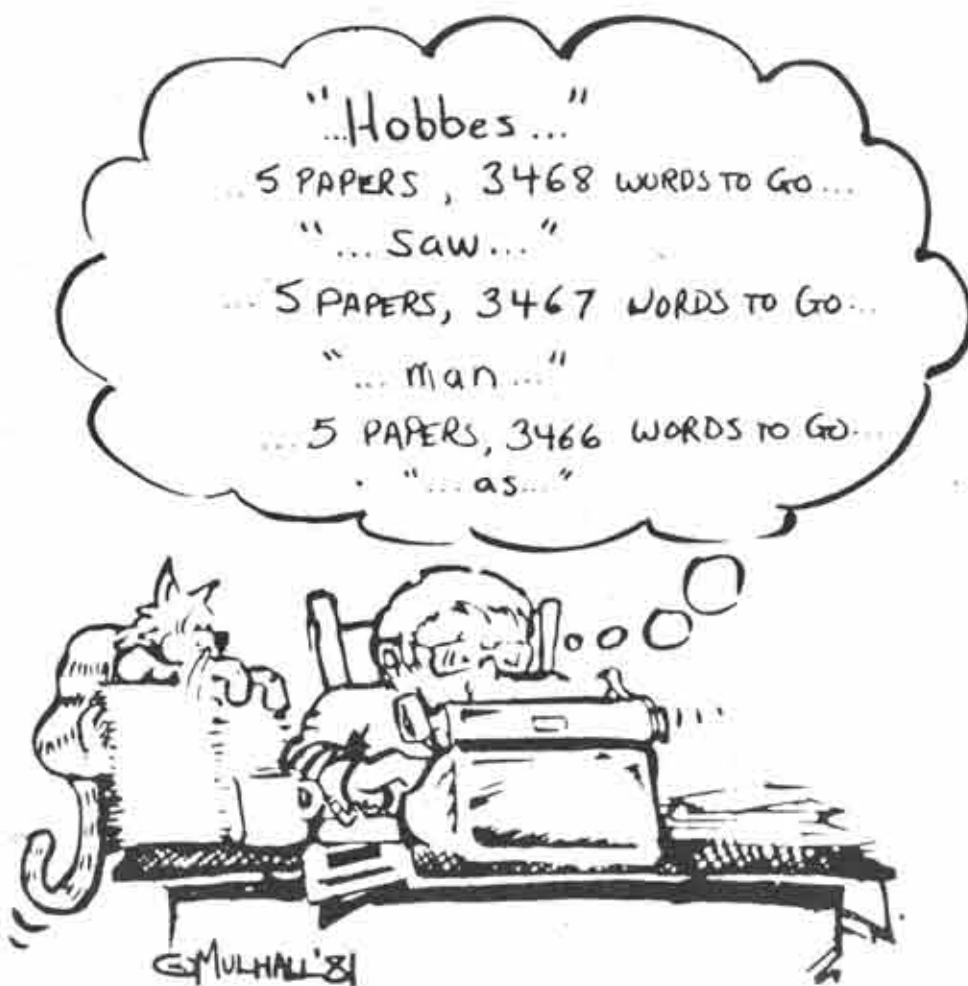 "...Hobbes..."
...5 PAPERS, 3468 WORDS TO GO...
"...saw..."
...5 PAPERS, 3467 WORDS TO GO...
"...man..."
...5 PAPERS, 3466 WORDS TO GO...
"...as..."
G MULHALL '81